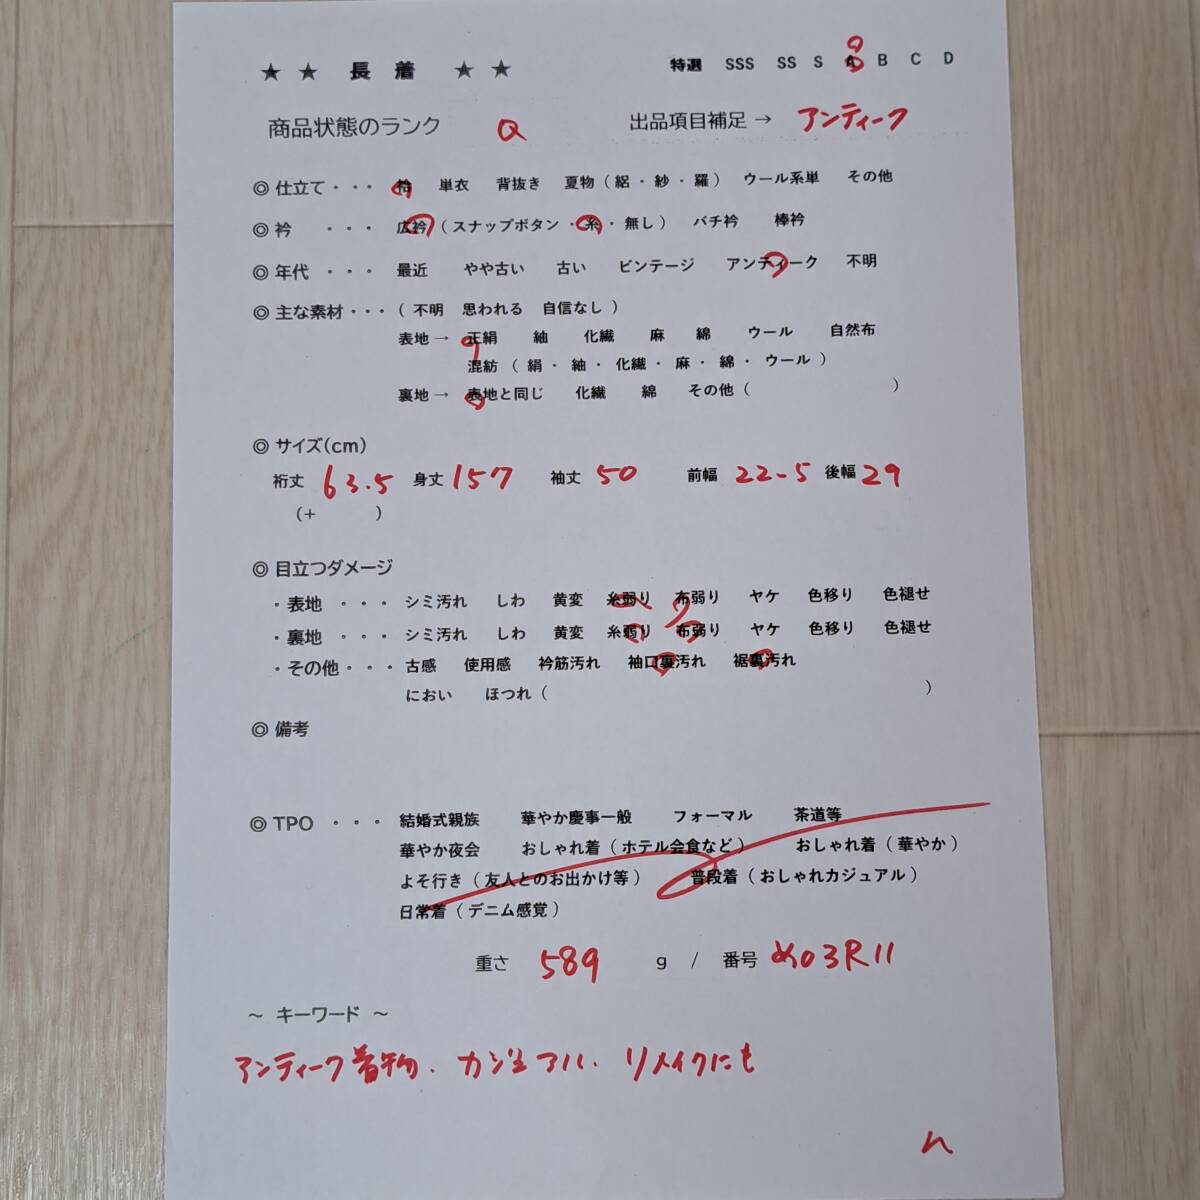 ★ ★ 長 着 ★ ★ 特選 SSS SS S A B C D
商品状態のランク a 出品項目補足 → アンティーク
◎ 仕立て ・・・ 袷 単衣 背抜き 夏物 ( 絽 ・ 紗 ・ 羅 ) ウール系単 その他
◎ 衿 ・・・ 広衿 ( スナップボタン ・ 糸 ・ 無し ) バチ衿 棒衿
◎ 年代 ・・・ 最近 やや古い 古い ビンテージ アンティーク 不明
◎ 主な素材 ・・・ ( 不明 思われる 自信なし )
表地 → 正絹 紬 化繊 麻 綿 ウール 自然布
混紡 ( 絹 ・ 紬 ・ 化繊 ・ 麻 ・ 綿 ・ ウール )
裏地 → 表地と同じ 化繊 綿 その他 ( )
◎ サイズ(cm)
裄丈 63.5 身丈 157 袖丈 50 前幅 22-5 後幅 29
(+ )
◎ 目立つダメージ
・ 表地 ・・・ シミ汚れ しわ 黄変 糸弱り 布弱り ヤケ 色移り 色褪せ
・ 裏地 ・・・ シミ汚れ しわ 黄変 糸弱り 布弱り ヤケ 色移り 色褪せ
・ その他 ・・・ 古感 使用感 衿筋汚れ 袖口裏汚れ 裾裏汚れ
におい ほつれ ( )
◎ 備考
◎ TPO ・・・ 結婚式親族 華やか慶事一般 フォーマル 茶道等
華やか夜会 おしゃれ着 ( ホテル会食など ) おしゃれ着 ( 華やか )
よそ行き ( 友人とのお出かけ等 ) 普段着 ( おしゃれカジュアル )
日常着 ( デニム感覚 )
重さ 589 g / 番号 め03R11
～ キーワード ～
アンティーク着物、カジュアル、リメイクにも